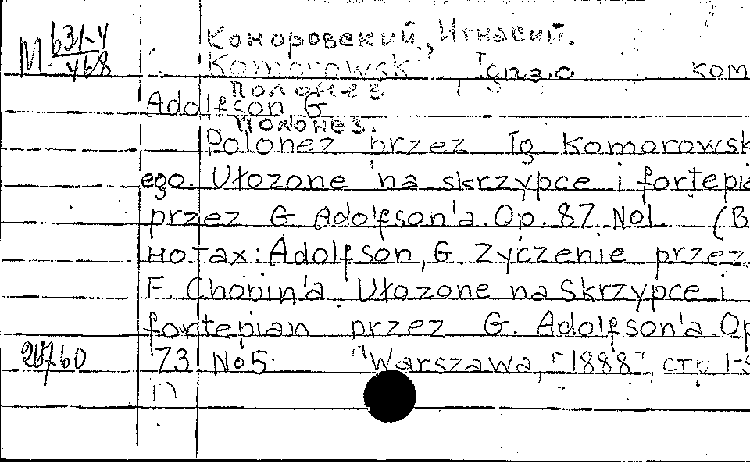 М 631-4
468
Коноровский, Игнасий.
Komorowsk Ignao ком
Полонез
Adolfson G
Полонез.
Polonez przez Ig Komorowsk
ego. Ułozone na skrzypce i fortepia
przez G Adolfson'a. Op. 87. No1. (В
нотах: Adolfson, G. Zyczenie przez
F. Chopin'a. Ułozone na skrzypce i
fortepian przez G. Adolfson'a Op
73 No5 "Warszawa, "1888", стр 1-5